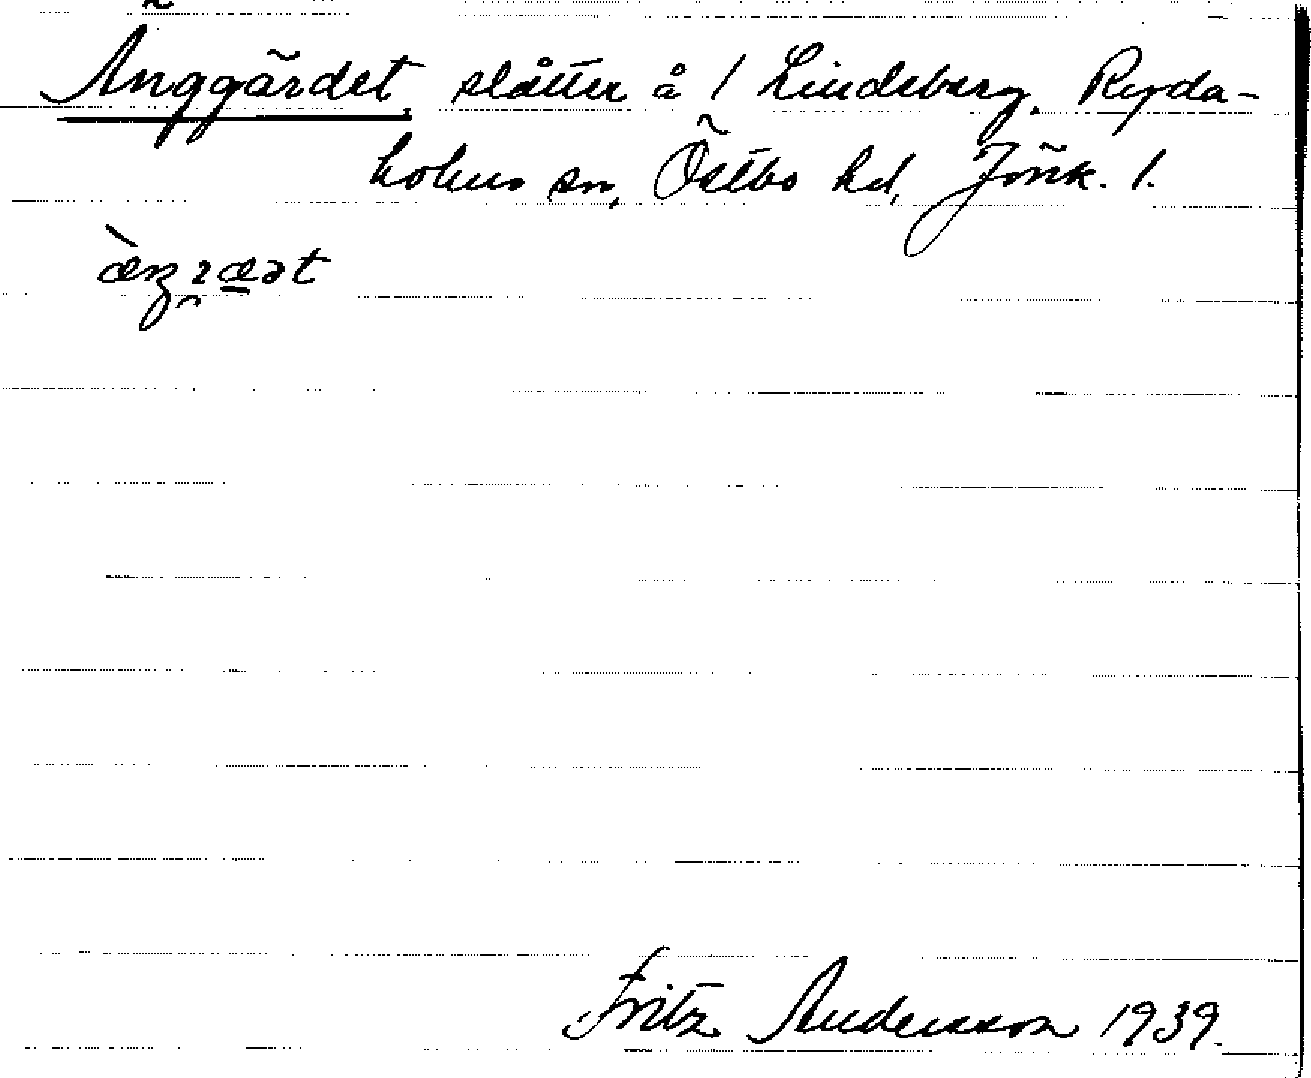 Änggärdet, slåtter å / Lindsberg, Ryda-
holms sn, Östbo hd, Jönk. l.
Fritz Andersson 1939.